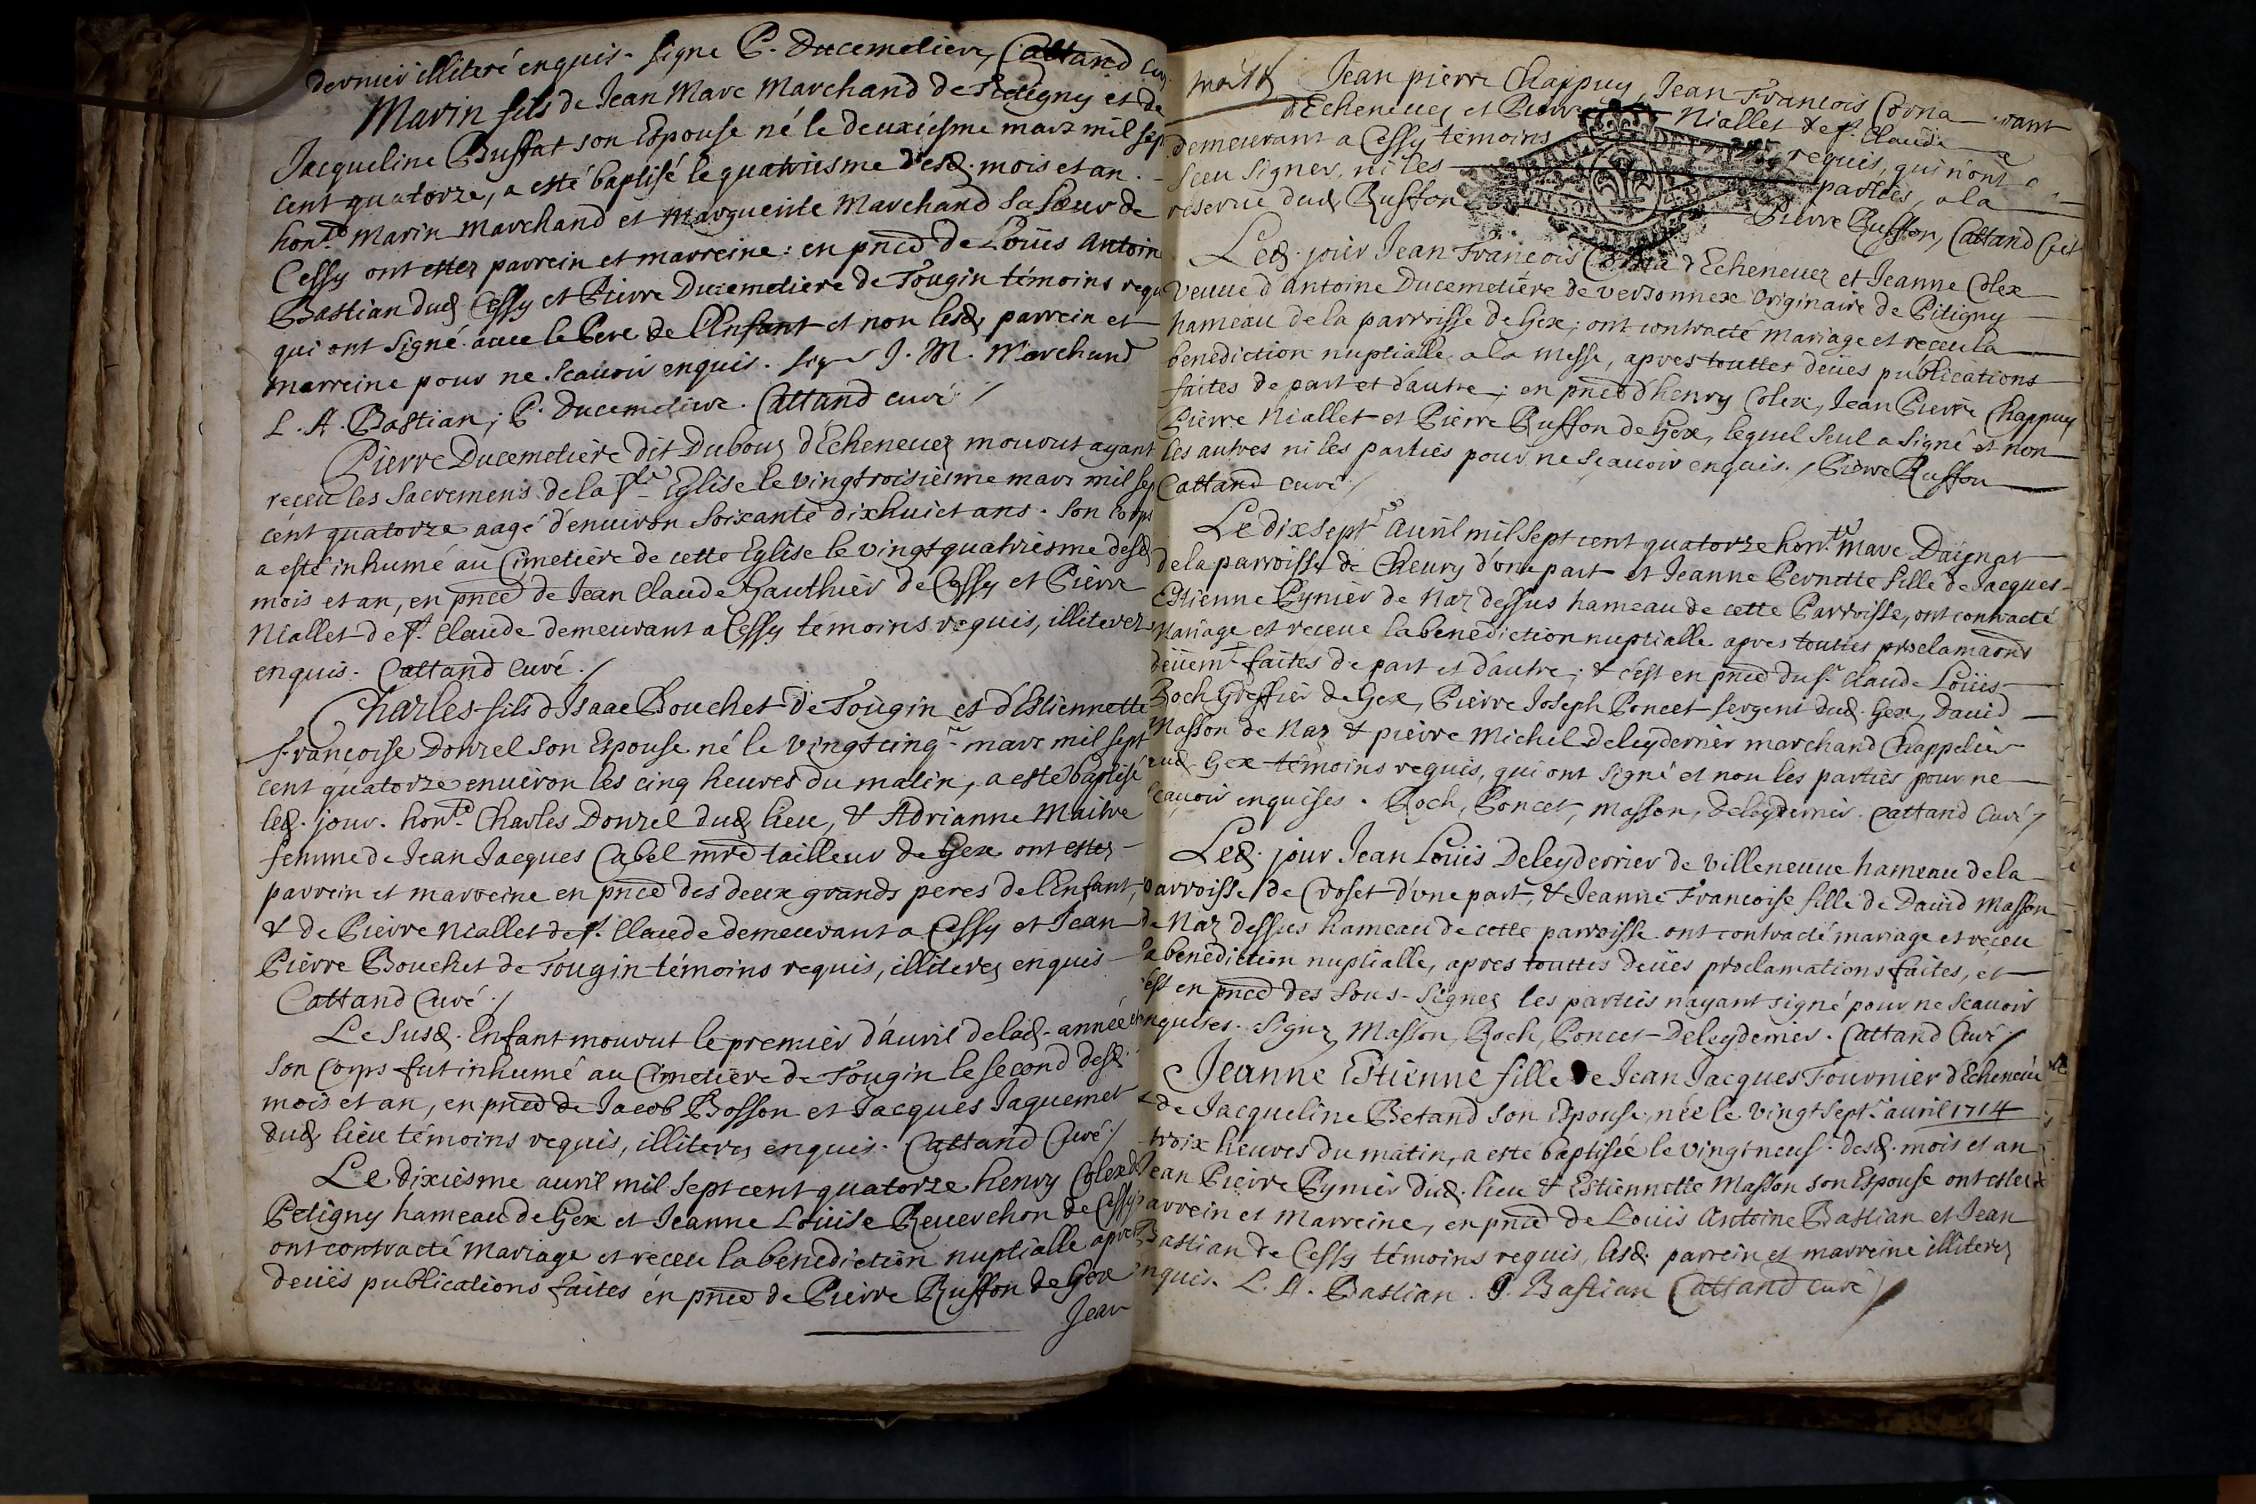 dernier illiteré enquis. signe P. Ducemetiere, Cattand Cu
Marin fils de Jean Marc Marchand de Pitigny et de
Jacqueline Buffat son Espouse né le deuxiesme mars mil sep
cent quatorze, a esté baptisé le quatriesme desd. mois et an.
hon.ble Marin Marchand et Marguerite Marchand sa Sœur de
Cessy ont estez parrein et marreine: en pnce de Loüis Antoin
Bastian dud Cessy et Pierre Ducemetiere de Tougin témoins requ
qui ont signé avec le Pere de l'Enfant et non lesd parrein et
marreine pour ne scavoir enquis. sig J. M. Marchand
L. A. Bastian; P. Ducemetiere. Cattand curé ./
Pierre Ducemetiere dit Dubouz d'Echenevez mourut ayant
receu les Sacremens de la Ste Eglise le vingtroisiesme mars mil sep
cent quatorze aagé d'environ soixante dixhuict ans. son corps
a esté inhumé au Cimetière de cette Eglise le vingt quatriesme desd
mois et an, en pnce de Jean Claude Gauthier de Cessy et Pierre
Niallet de St. Claude demeurant a Cessy témoins requis, illiterez
enquis. Cattand Curé ./
Charles fils d'Isaac Bouchet de Tougin et d'Estiennette
francoise Donzel son Espouse né le vingtcinq.e mars mil sept
cent quatorze environ les cinq heures du matin, a esté baptisé
led. jour. hon.ble Charles Donzel dud lieu, & Adrianne Maitre
femme de Jean Jacques Cabel mre tailleur de Gex ont estez
parrein et marreine en pnce des deux grands peres de l'Enfant,
& de Pierre Niallet de St. Claude demeurant a Cessy et Jean
Pierre Bouchet de Tougin témoins requis, illiterez enquis
Cattand Curé ./
Le susd. Enfant mourut le premier d'avril de lad. année et
son Corps fut inhumé au Cimetiere de Tougin le second desd.
mois et an, en pnce de Jacob Bosson et Jacques Jaquemet
dud lieu témoins requis, illiterez enquis. Cattand Curé ./
Le dixiesme avril mil sept cent quatorze henry Colex de
Petigny hameau de Gex et Jeanne Loüise Reverchon de Cessy
ont contracté Mariage et receu la benediction nuptialle apres
deües publications faites en pnce de Pierre Ruffon de Gex
Jean
Jean pierre Chappuy, Jean Francois Corna
d'Echenevez et Pierre Niallet de St. Claude
demeurant a Cessy témoins requis, qui n'ont
sceu signer, ni les parties, a la
reserve dud Ruffon Pierre Ruffon, Cattand Curé
Led. jour Jean François Corna d'Echenevez et Jeanne Colex
veuve d'Antoine Ducemetière de versonnex Originaire de Pitigny
hameau de la parroisse de Gex, ont contracté Mariage et receu la
benediction nuptialle a la Messe, apres touttes deües publications
faites de part et d'autre; en pnce d'henry Colex, Jean Pierre Chappuy
Pierre Niallet et Pierre Ruffon de Gex, lequel seul a signé et non
les autres ni les parties pour ne sçavoir enquis. / Pierre Ruffon
Cattand curé /
Le dixsept.e Avril mil sept cent quatorze hon.ble Marc Daignat
de la parroisse de Chevry d'une part et Jeanne Pernette fille de Jacques
Estienne Pynier de Naz dessus hameau de cette Parroisse, ont contracté
Mariage et receue la benediction nuptialle apres touttes proclamaons
deüem.t faites de part et d'autre; & c'est en pnce du sr. Claude Loüis
Roch Greffier de Gex, Pierre Joseph Poncet sergent dud. Gex, David
Masson de Naz & pierre Michel Deleyderrier marchand Chappelier
dud. Gex témoins requis, qui ont signé et non les parties pour ne
scavoir enquises. Roch, Poncet, Masson, Deleyderrier. Cattand Curé /
Led. jour Jean Loüis Deleyderrier de Villeneuve hameau de la
parroisse de Croset d'une part, & Jeanne Francoise fille de David Masson
de Naz dessus hameau de cette parroisse ont contracté mariage et receu
la benediction nuptialle, apres touttes deües proclamations faites, et
c'est en pnce des sous-signez les parties nayant signé pour ne scavoir
enquises. Signz Masson, Roch, Poncet Deleyderrier. Cattand Curé /
Jeanne Estienne fille de Jean Jacques Fournier d'Echenevé
& de Jacqueline Betand son Espouse, née le vingt sept.e avril 1714
troix heures du matin, a esté baptisée le vingt neuf. desd. mois et an
Jean Pierre Pynier dud. lieu & Estiennette Masson son Espouse ont estez
parrein et Marreine, en pnce de Loüis Antoine Bastian et Jean
Bastian de Cessy témoins requis, lesd. parrein et marreine illiterez
enquis. L. A. Bastian. J. Bastian Cattand curé /